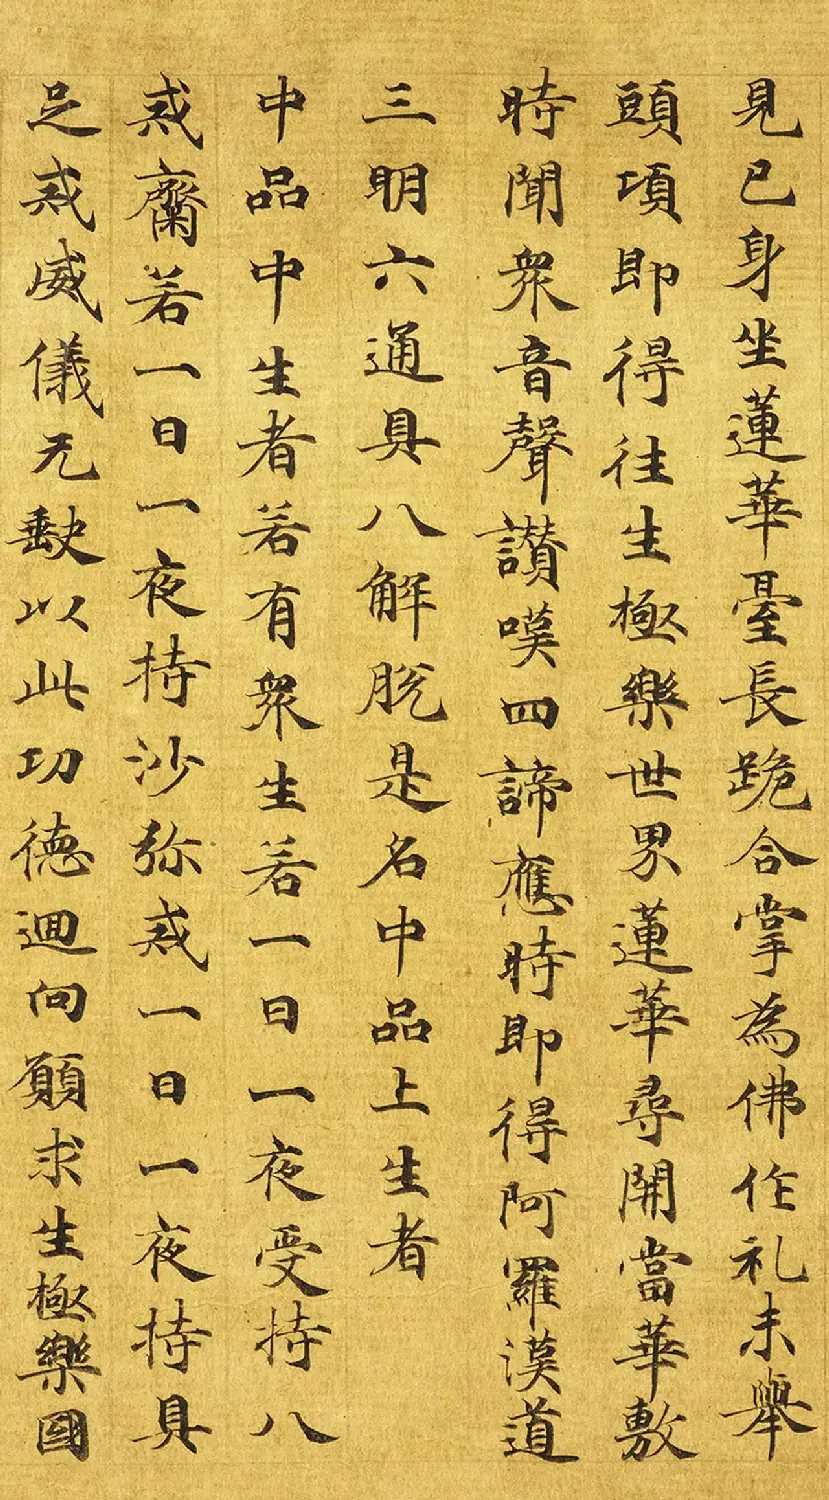 見已身坐蓮華臺長跪合掌為佛作礼未舉
頭項即得往生極樂世界蓮華尋開當華敷
時聞衆音聲讃嘆四諦應時即得阿羅漢道
三明六通具八解脫是名中品上生者
中品中生者若有衆生若一日一夜受持八
戒齋若一日一夜持沙弥戒一日一夜持具
足戒威儀无缺以此功德迴向願求生極樂國